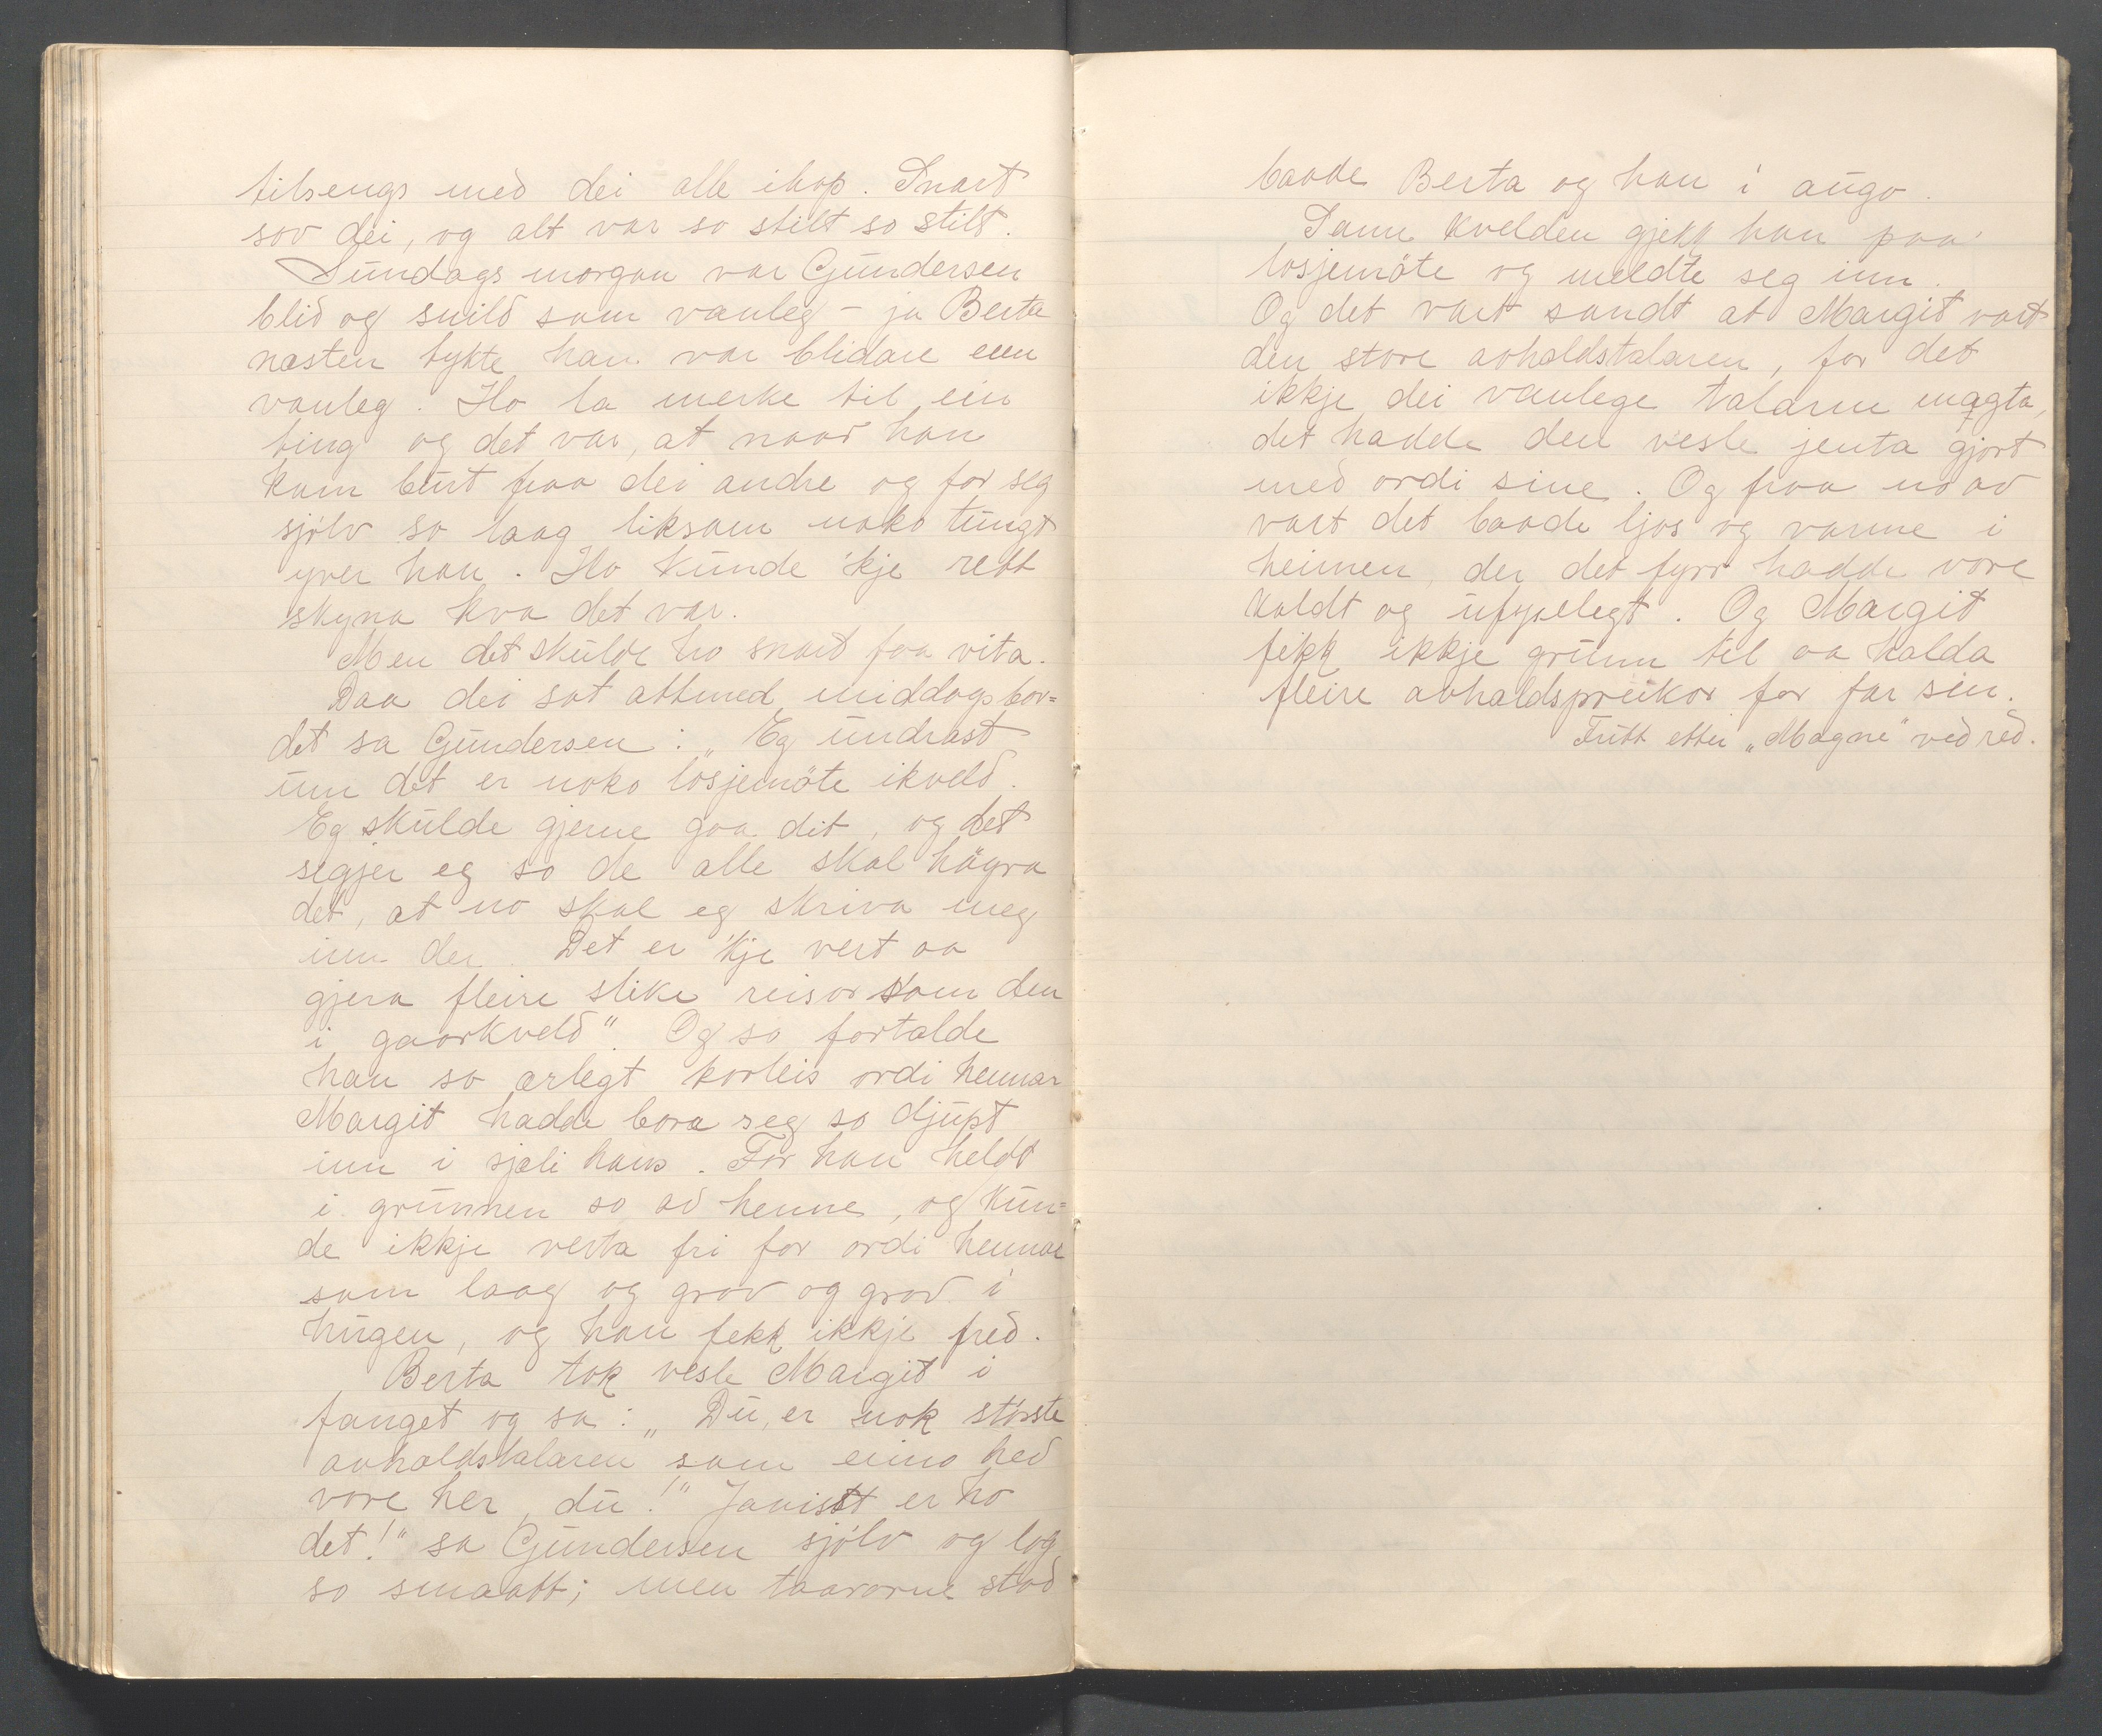 tilsengs med dei alle ihop. Snart
sov dei, og alt var so stilt so stilt.
Sundags morgon var Gundersen
blid og snild som vanleg - ja Berta
næsten tykte han var blidare enn
vanleg. Ho la merke til ein
ting og det var, at naar han
kom burt fraa dei andre og for seg
sjölv so laag liksom noko tungt
yver han. Ho kunde 'kje rett
skyna kva det var.
Men det skulde ho snart faa vita.
Daa dei sat attmed middagsbor=
det sa Gundersen: „Eg undrast
um det er noko losjemöte ikveld.
Eg skulde gjerne gaa dit, og det
segjer eg so de alle skal högra
det, at no skal eg skriva meg
inn der. Det er 'kje vert aa
gjera fleire slike reisor som den
i gaarkveld". Og so fortalde
han so ærlegt korleis ordi hennar
Margit hadde bora seg so djupt
inn i sjæli hans. For han heldt
i grunnen so av henne, og kun=
de ikkje verta fri for ordi hennar
som laag og grov og grov i
hugen, og han fekk ikkje fred.
Berta tok vesle Margit i
fanget og sa: „Du er nok störste
avholdstalaren som eino hed
vore her, du!" Javisst er ho
det!" sa Gundersen sjölv og log
so smaatt; men taarorne stod
baade Berta og han i augo.
Same kvelden gjekk han paa
losjemöte og meldte seg inn.
Og det vart sandt at Margit vart
den store avholdstalaren, for det
ikkje dei vanlege talarne magta,
det hadde den vesle jenta gjort
med ordi sine. Og fraa no av
vart det baade ljos og varme i
heimen, der det fyrr hadde vore
kaldt og ufyselegt. Og Margit
fekk ikkje grunn til aa halda
fleire avhaldspreikor for far sin.
Fritt etter „Magne" ved red.